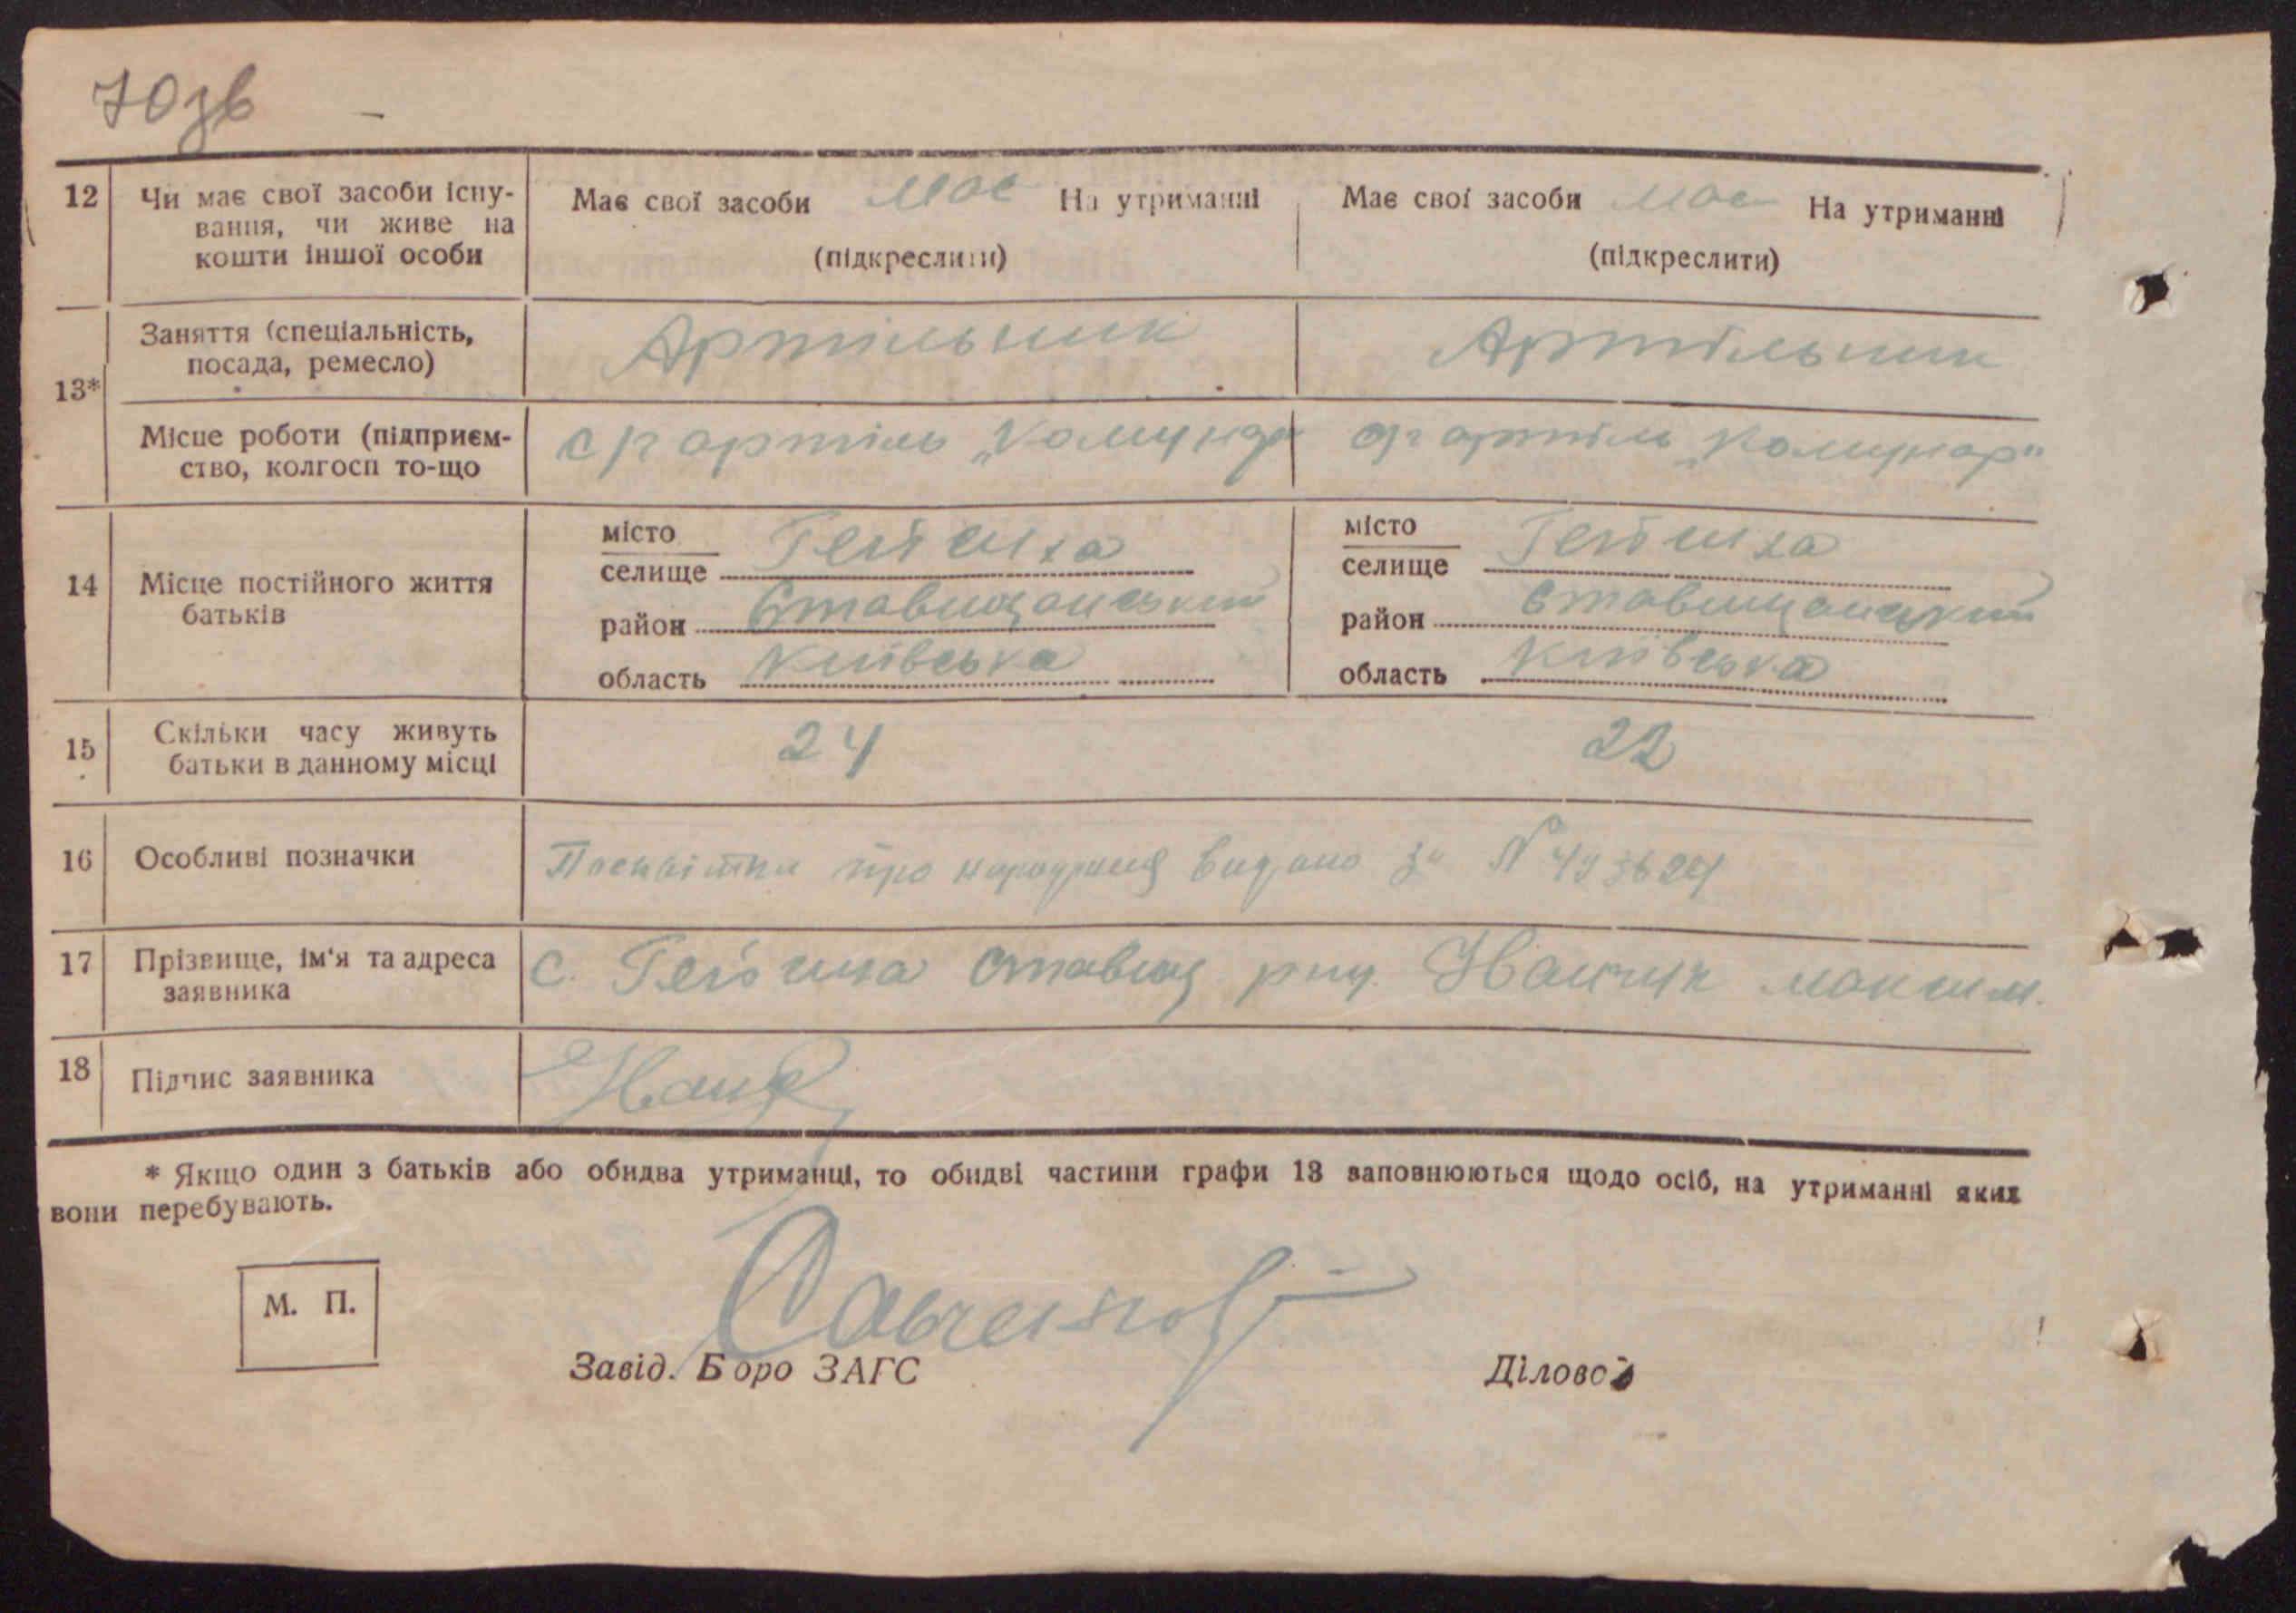 70зв
12 Чи має свої засоби існу-
вання, чи живе на
кошти іншої особи
Має свої засоби має На утриманні
(підкреслити)
Має свої засоби має На утриманні
(підкреслити)
13*
Заняття (спеціальність,
посада, ремесло)
Артільник
Артільник
Місце роботи (підприєм-
ство, колгосп то-що
артіль „Комунар
артіль „Комунар"
14 Місце постійного життя
батьків
місто
селище Гейсиха
район Ставищанський
область Київська
місто
селище Гейсиха
район Ставищанський
область Київська
15 Скільки часу живуть
батьки в данному місці
24
22
16 Особливі позначки
про народження видано за №
17 Прізвище, ім'я та адреса
заявника
с. Гейсиха Ставищ максим.
18 Підпис заявника
* Якщо один з батьків або обидва утриманці, то обидві частини графи 13 заповнюються щодо осіб, на утриманні яких
вони перебувають.
М. П.
Завід. Бюро ЗАГС
Діловод